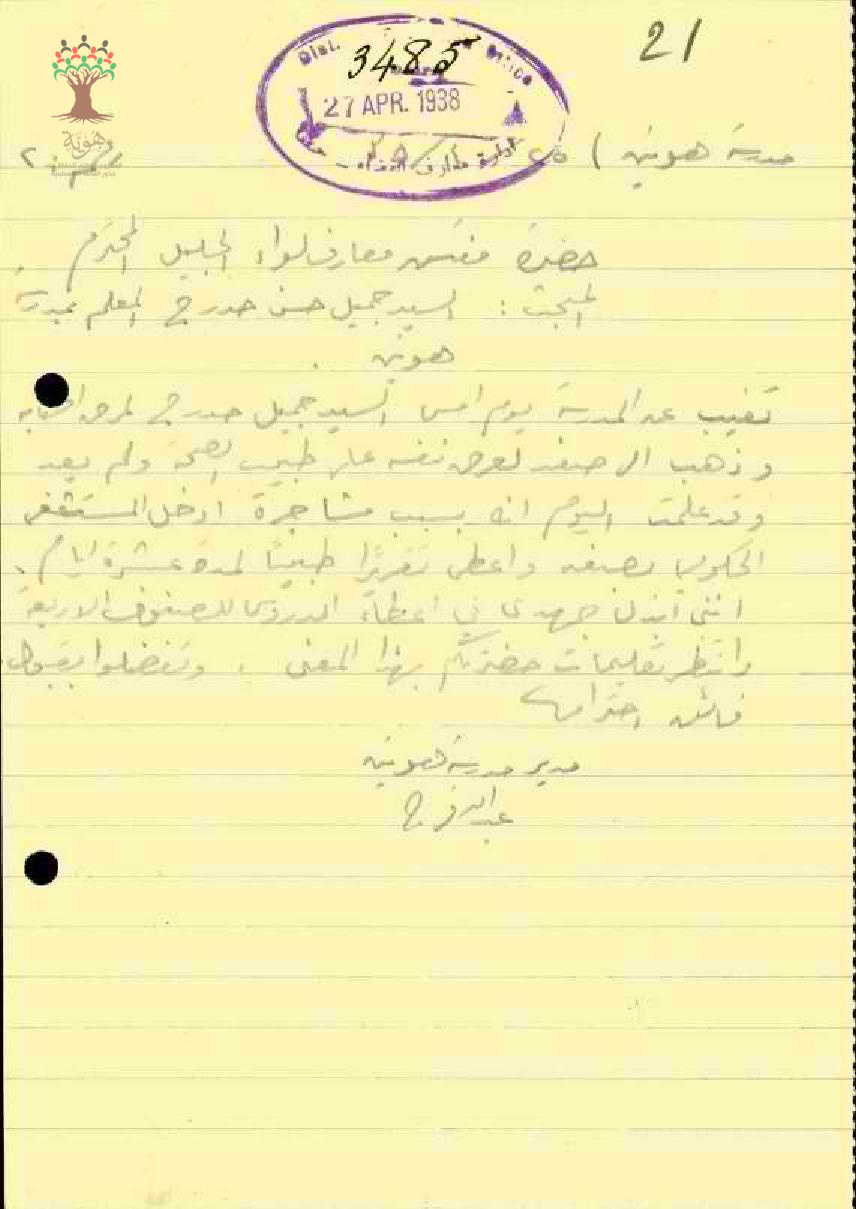 21
Dist. Office
3485
27 APR. 1938
إدارة معارف
هوية
مدرسة هونين ) ٢٥
حضرة مفتش معارف لواء الجليل المحترم
المبحث : السيد جميل حسن حدرج المعلم بمدرسة
هونين .
تغيب عن المدرسة يوم امس السيد جميل حدرج لمرض اصابه
وذهب الى صفد لعرض نفسه على طبيب الصحة ولم يعد
وقد علمت اليوم انه بسبب مشاجرة ادخل المستشفى
الحكومي بصفد واعطي تقريرًا طبيًا لمدة عشرة ايام .
انني أبذل جهدي في اعطاء الدروس للصفوف الاربعة
وانتظر تعليمات حضرتكم بهذا المعنى . وتفضلوا بقبول
فائق احترامي
مدير مدرسة هونين
عبد الله فرج